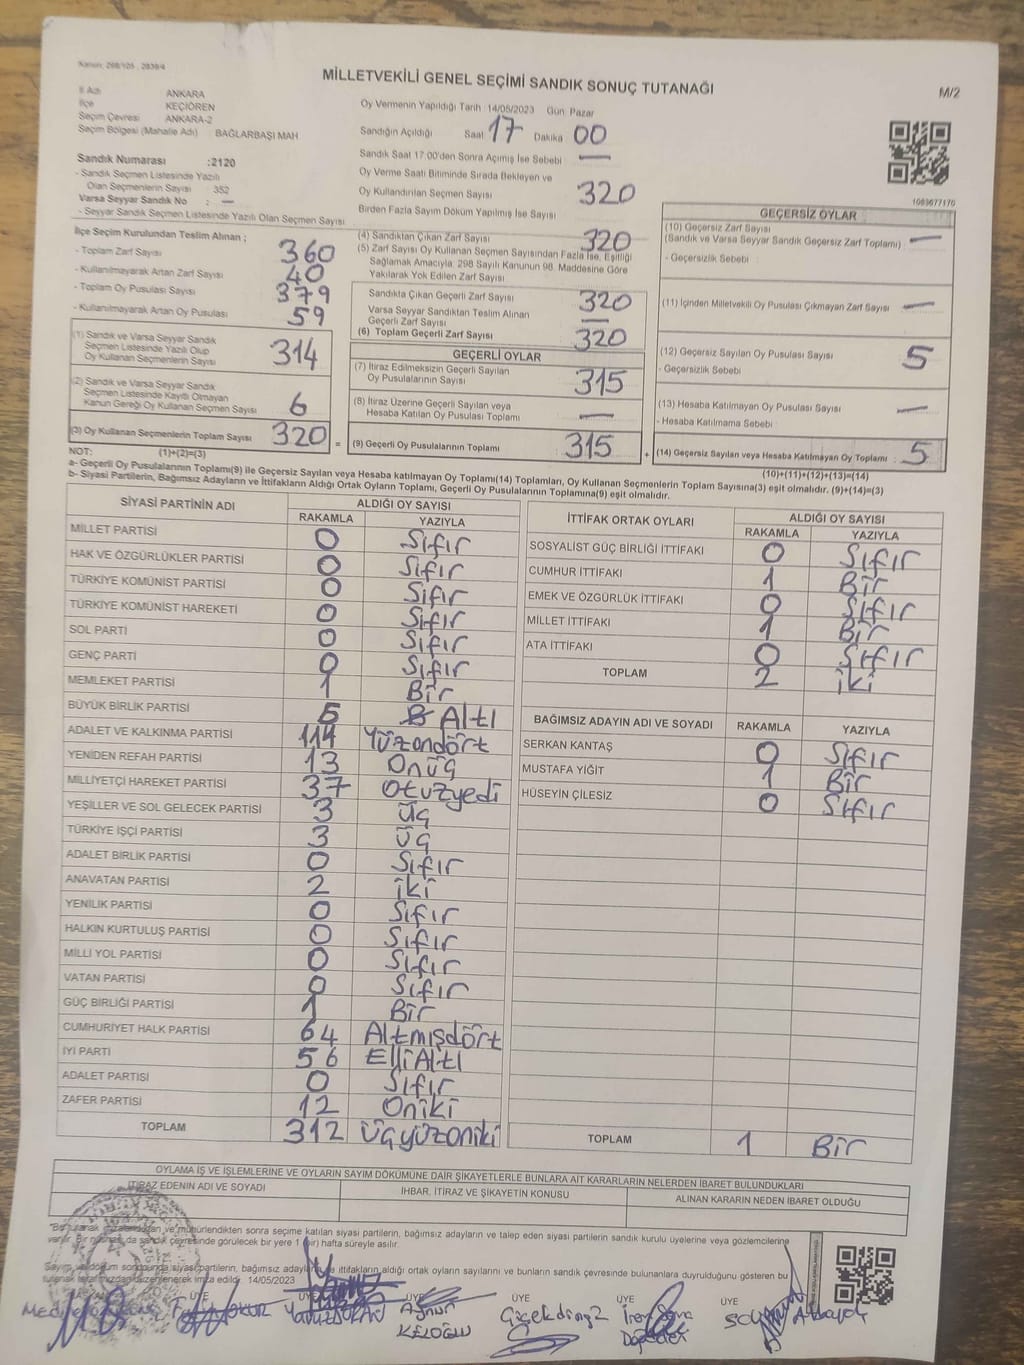 Kanun: 298/105 , 2839/4
MİLLETVEKİLİ GENEL SEÇİMİ SANDIK SONUÇ TUTANAĞI
M/2
İl Adı ANKARA
İlçe KEÇİÖREN
Seçim Çevresi ANKARA-2
Seçim Bölgesi (Mahalle Adı) BAĞLARBAŞI MAH
Oy Vermenin Yapıldığı Tarih 14/05/2023 Gün: Pazar
Sandığın Açıldığı Saat 17 Dakika 00
Sandık Saat 17:00'den Sonra Açılmış İse Sebebi —
Oy Verme Saati Bitiminde Sırada Bekleyen ve
Oy Kullandırılan Seçmen Sayısı 320
Birden Fazla Sayım Döküm Yapılmış İse Sayısı
Sandık Numarası :2120
- Sandık Seçmen Listesinde Yazılı
Olan Seçmenlerin Sayısı 352
Varsa Seyyar Sandık No : —
- Seyyar Sandık Seçmen Listesinde Yazılı Olan Seçmen Sayısı
1083677170
İlçe Seçim Kurulundan Teslim Alınan ;
- Toplam Zarf Sayısı 360
- Kullanılmayarak Artan Zarf Sayısı 40
- Toplam Oy Pusulası Sayısı 379
- Kullanılmayarak Artan Oy Pusulası 59
(1) Sandık ve Varsa Seyyar Sandık
Seçmen Listesinde Yazılı Olup
Oy Kullanan Seçmenlerin Sayısı 314
(2) Sandık ve Varsa Seyyar Sandık
Seçmen Listesinde Kayıtlı Olmayan
Kanun Gereği Oy Kullanan Seçmen Sayısı 6
(3) Oy Kullanan Seçmenlerin Toplam Sayısı 320 =
(4) Sandıktan Çıkan Zarf Sayısı 320
(5) Zarf Sayısı Oy Kullanan Seçmen Sayısından Fazla İse, Eşitliği
Sağlamak Amacıyla, 298 Sayılı Kanunun 98. Maddesine Göre
Yakılarak Yok Edilen Zarf Sayısı
Sandıkta Çıkan Geçerli Zarf Sayısı 320
Varsa Seyyar Sandıktan Teslim Alınan
Geçerli Zarf Sayısı —
(6) Toplam Geçerli Zarf Sayısı 320
GEÇERLİ OYLAR
(7) İtiraz Edilmeksizin Geçerli Sayılan
Oy Pusulalarının Sayısı 315
(8) İtiraz Üzerine Geçerli Sayılan veya
Hesaba Katılan Oy Pusulası Toplamı —
(9) Geçerli Oy Pusulalarının Toplamı 315 +
GEÇERSİZ OYLAR
(10) Geçersiz Zarf Sayısı
(Sandık ve Varsa Seyyar Sandık Geçersiz Zarf Toplamı) —
- Geçersizlik Sebebi :
(11) İçinden Milletvekili Oy Pusulası Çıkmayan Zarf Sayısı —
(12) Geçersiz Sayılan Oy Pusulası Sayısı 5
- Geçersizlik Sebebi
(13) Hesaba Katılmayan Oy Pusulası Sayısı —
- Hesaba Katılmama Sebebi
(14) Geçersiz Sayılan veya Hesaba Katılmayan Oy Toplamı : 5
NOT: (1)+(2)=(3) (10)+(11)+(12)+(13)=(14)
a- Geçerli Oy Pusulalarının Toplamı(9) ile Geçersiz Sayılan veya Hesaba katılmayan Oy Toplamı(14) Toplamları, Oy Kullanan Seçmenlerin Toplam Sayısına(3) eşit olmalıdır. (9)+(14)=(3)
b- Siyasi Partilerin, Bağımsız Adayların ve İttifakların Aldığı Ortak Oyların Toplamı, Geçerli Oy Pusulalarının Toplamına(9) eşit olmalıdır.
SİYASİ PARTİNİN ADI ALDIĞI OY SAYISI
RAKAMLA YAZIYLA
MİLLET PARTİSİ 0 Sıfır
HAK VE ÖZGÜRLÜKLER PARTİSİ 0 Sıfır
TÜRKİYE KOMÜNİST PARTİSİ 0 Sıfır
TÜRKİYE KOMÜNİST HAREKETİ 0 Sıfır
SOL PARTİ 0 Sıfır
GENÇ PARTİ 0 Sıfır
MEMLEKET PARTİSİ 1 Bir
BÜYÜK BİRLİK PARTİSİ 6 Altı
ADALET VE KALKINMA PARTİSİ 114 Yüzondört
YENİDEN REFAH PARTİSİ 13 Onüç
MİLLİYETÇİ HAREKET PARTİSİ 37 Otuzyedi
YEŞİLLER VE SOL GELECEK PARTİSİ 3 Üç
TÜRKİYE İŞÇİ PARTİSİ 3 Üç
ADALET BİRLİK PARTİSİ 0 Sıfır
ANAVATAN PARTİSİ 2 iki
YENİLİK PARTİSİ 0 Sıfır
HALKIN KURTULUŞ PARTİSİ 0 Sıfır
MİLLİ YOL PARTİSİ 0 Sıfır
VATAN PARTİSİ 0 Sıfır
GÜÇ BİRLİĞİ PARTİSİ 1 Bir
CUMHURİYET HALK PARTİSİ 64 Altmışdört
İYİ PARTİ 56 ElliAltı
ADALET PARTİSİ 0 Sıfır
ZAFER PARTİSİ 12 Oniki
TOPLAM 312 Üçyüzoniki
İTTİFAK ORTAK OYLARI ALDIĞI OY SAYISI
RAKAMLA YAZIYLA
SOSYALİST GÜÇ BİRLİĞİ İTTİFAKI 0 Sıfır
CUMHUR İTTİFAKI 1 Bir
EMEK VE ÖZGÜRLÜK İTTİFAKI 0 Sıfır
MİLLET İTTİFAKI 1 Bir
ATA İTTİFAKI 0 Sıfır
TOPLAM 2 iki
BAĞIMSIZ ADAYIN ADI VE SOYADI RAKAMLA YAZIYLA
SERKAN KANTAŞ 0 Sıfır
MUSTAFA YİĞİT 1 Bir
HÜSEYİN ÇİLESİZ 0 Sıfır
TOPLAM 1 Bir
OYLAMA İŞ VE İŞLEMLERİNE VE OYLARIN SAYIM DÖKÜMÜNE DAİR ŞİKAYETLERLE BUNLARA AİT KARARLARIN NELERDEN İBARET BULUNDUKLARI
İTİRAZ EDENİN ADI VE SOYADI İHBAR, İTİRAZ VE ŞİKAYETİN KONUSU ALINAN KARARIN NEDEN İBARET OLDUĞU
"Bu tutanak imzalandıktan ve mühürlendikten sonra seçime katılan siyasi partilerin, bağımsız adayların ve talep eden siyasi partilerin sandık kurulu üyelerine veya gözlemcilerine
verilir. Bir nüshası da sandık çevresinde görülecek bir yere 1 (bir) hafta süreyle asılır.
Sayım ve döküm sonucunda siyasi partilerin, bağımsız adayların ve ittifakların aldığı ortak oyların sayılarını ve bunların sandık çevresinde bulunanlara duyrulduğunu gösteren bu
tutanak tarafımızdan düzenlenerek imza edildi. 14/05/2023
ÜYE ÜYE ÜYE ÜYE ÜYE
Aynur
KELOĞLU